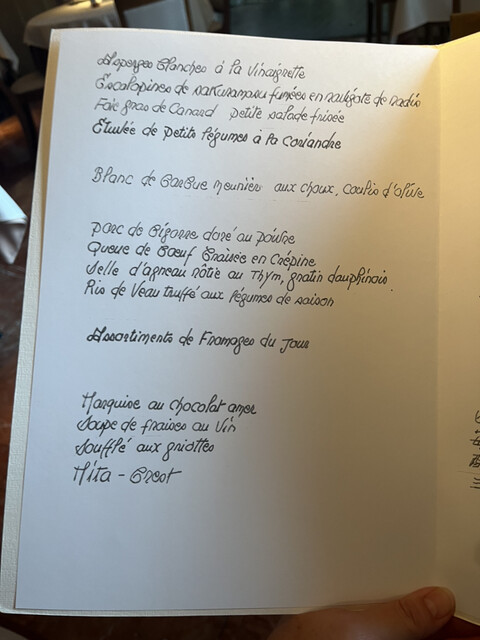 Asperges Blanches à la Vinaigrette
Escalopines de sakuramasu fumées en ravigote de radis
Foie gras de Canard petite salade frisée
Étuvée de petits légumes à la Coriandre
Blanc de Barbue meunière aux choux, coulis d'olive
Porc de Bigorre doré au poivre
Queue de Bœuf Braisée en Crépine
Selle d'agneau rôtie au Thym, gratin dauphinois.
Ris de Veau truffé aux légumes de saison
Assortiments de Fromages du Jour
Marquise au chocolat amer
Soupe de fraises au Vin
Soufflé aux griottes
Mita -
三